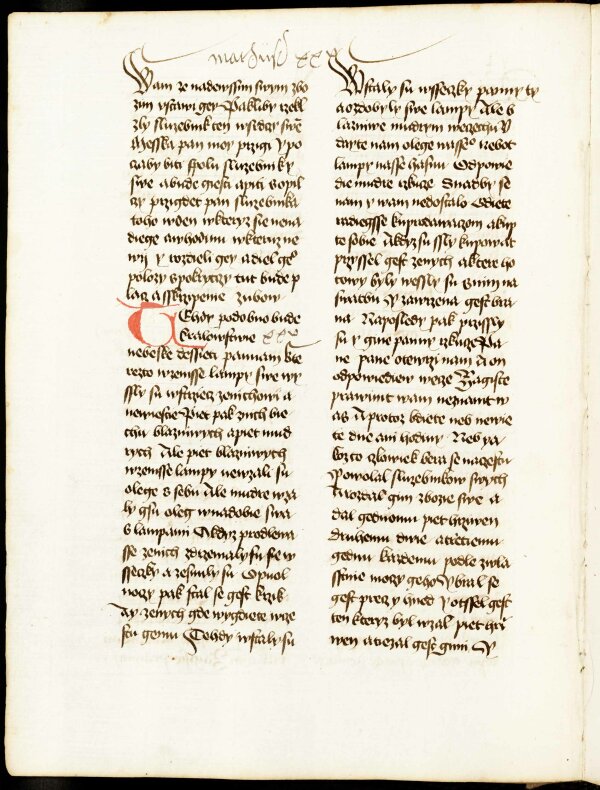 Wam ze nadewssim swym zbo
zim vstawi gey Pakliby rzekl
zly sluzebnik ten w srdczy swe
Messka pan moy przigi Y po
czaby biti spolu sluzebniky
swe a bude giesti a piti s opil
czy przigdet pan sluzebnika
toho w den w kteryz sie nena
diege a w hodinu w kteruz ne
wij y rozdieli gey a diel geho
polozy s pokrytczy tut bude p
lacz a sskrzipenie zubow
Tehdy podobno bude
kralowstwie xxv
nebeske dessieti pannam kte
rezto wzemsse lampy swe wy
ssly su w strziecz zenichowi a
newiestie Piet pak z nich bie
chu blazniwych a piet mud
rych Ale piet blazniwych
wzemsse lampy newzali su
olege s sebu Ale mudre wza
ly gsu oleg w nadobie swa
s lampami A kdyz prodlewa
sse zenich zdrzemaly su se w
sseczky a zesnuly su O puol
noczy pak stal se gest krzik
Ay zenych gde wygdiete wze
stu gemu Tehdy wstaly su
Wstaly su wsseczky panny ty
a ozdobyly swe lampy Ale b
lazniwe mudrym wezechu
dayte nam olege nasseho nebot
lampy nasse hasnu Odpowie
die mudre rzkuze Snadby se
nam y wam nedostalo Gdiete
radiegsse k prodawaczom a kup
te sobie A kdyz su ssly kupowat
przyssel gest zenych a ktere ho
towy byly wessly su s nim na
swatbu Y zawrzena gest bra
na Naposledy pak przissly
su y gine panny rzkuze Pa
ne pane otewrzi nam A on
odpowiediew wecze Zagiste
prawimt wam neznamt w
as A protoz bdiete neb newie
te dne ani hodiny Neb ya
kozto czlowiek bera se na czestu
Powolal sluzebnikow swych
A rozdal gim zbozie swe a
dal gednomu piet hrziwen
druhemu dwie a trzetiemu
gednu kazdemu podle wla
sstnie moczy geho Y bral se
gest precz y hned Y otssel gest
ten kteryz byl wzal piet hrzi
wen a tiezal gest gimi Y